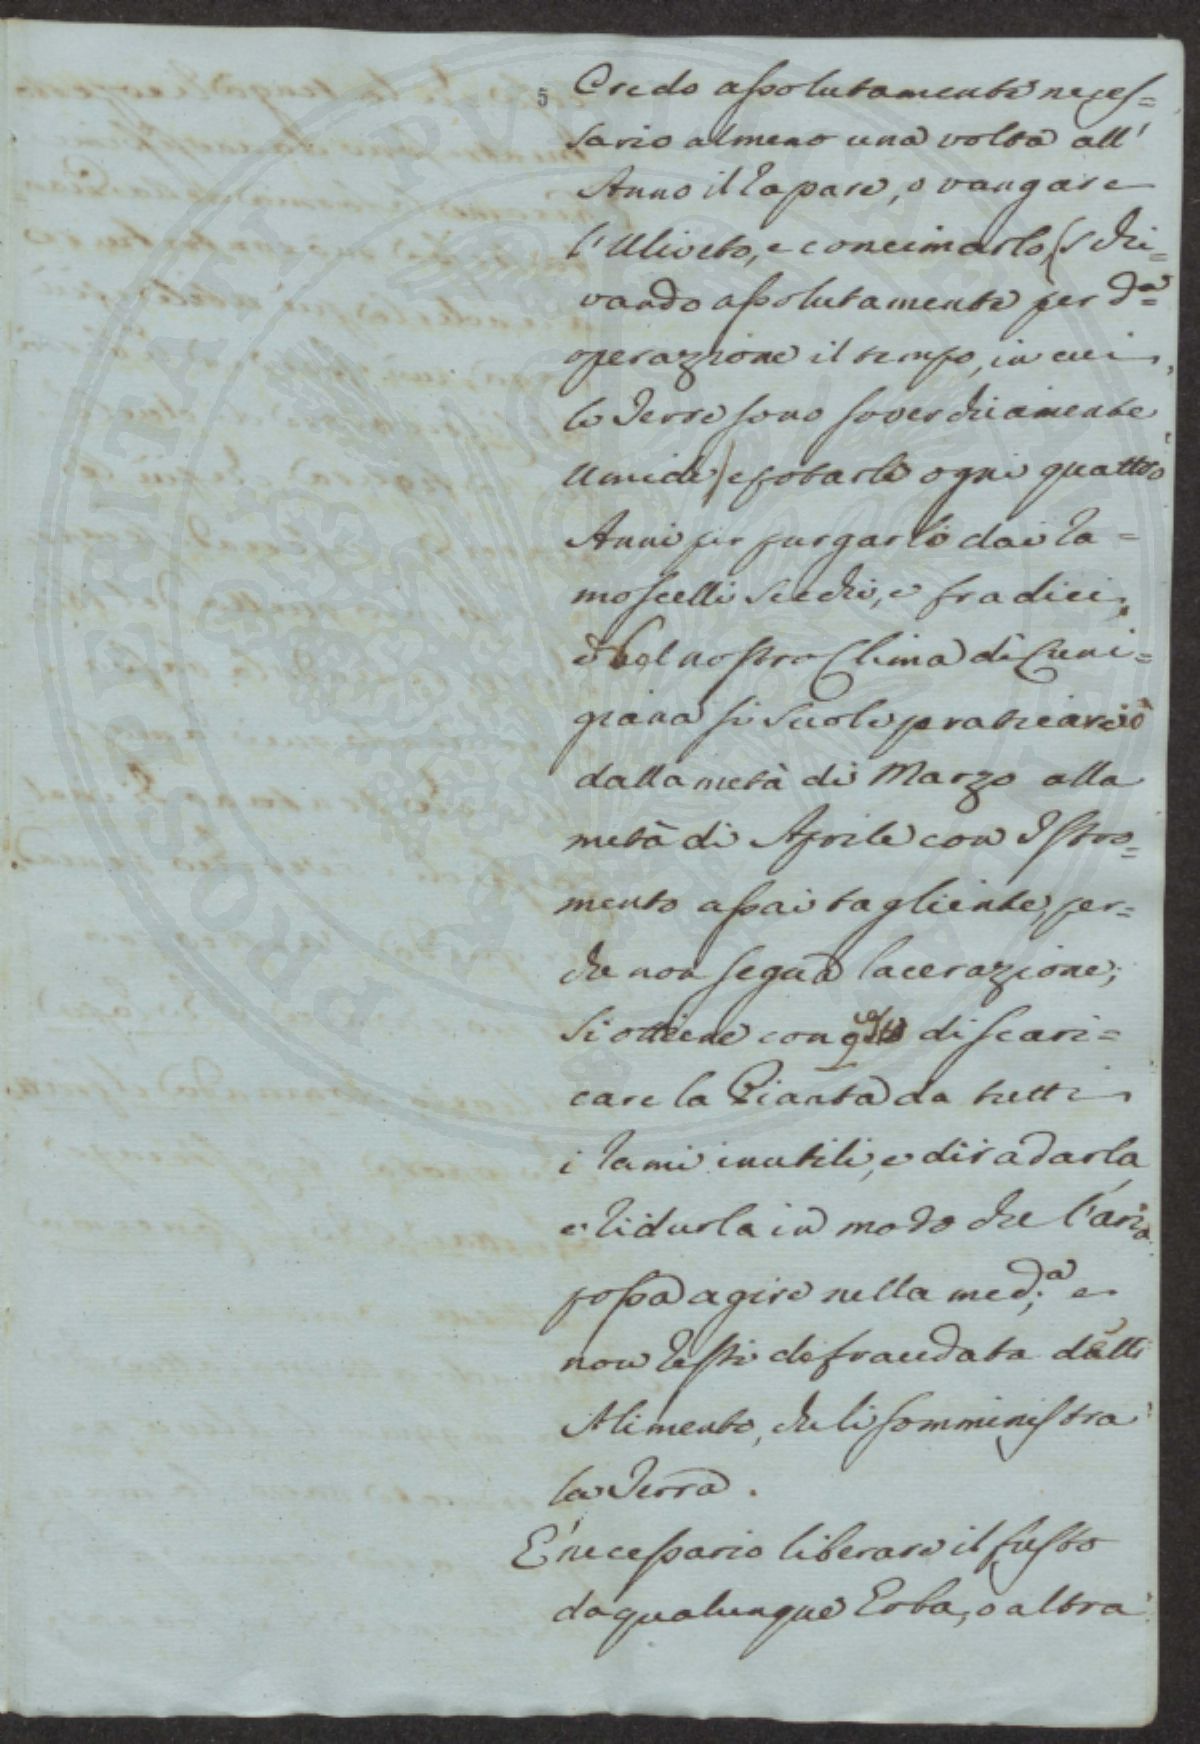 5 Credo assolutamente neces=
sario almeno una volta all'
Anno il Zapare, o vangare
l'Uliveto, e concimarlo, (schi=
vando assolutamente per d.a
operazione il tempo, in cui
le Terre sono soverchiamente
Umide) e potarlo ogni quattro
Anni per purgarlo dai ra=
moscelli secchi, e fradici,
e nel nostro Clima di Luni=
giana si suole praticare ciò
dalla metà di Marzo alla
metà di Aprile con Istro=
mento assai tagliente, per=
che non segua lacerazione;
Si ottiene con questo di scari=
care la Pianta da tutti
i rami inutili, e diradarla,
e ridurla in modo che l'aria
possa agire nella med.a e
non resti defraudata dall'
Alimento, che li somministra
la Terra.
E' necessario liberare il fusto
da qualunque Erba, o altra
PROSPERITATI PVBLICAE AVGENDAE